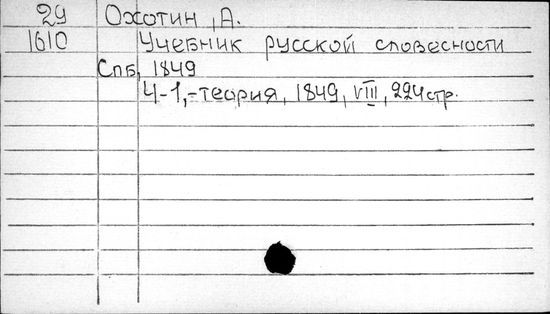 29 Охотин, А.
1610 Учебник русской словесности
Спб, 1849
Ч-1,-теория, 1849, VIII, 224 стр.